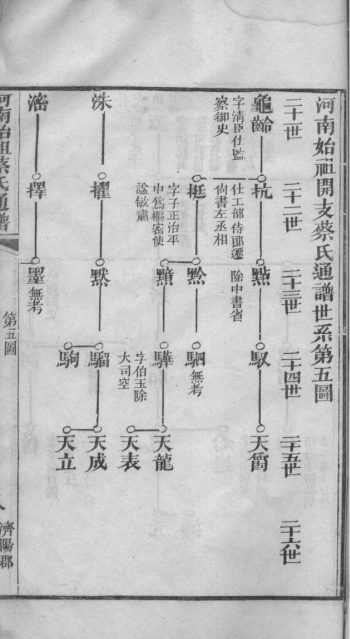 河南始祖開支蔡氏通譜世系第五圖
二十一世
二十二世
二十三世
二十四世
二十五世
二十六世
龜齡
字清臣仕監
察御史
抗
仕工部侍郎遷
尚書左丞相
點
除中書省
馭
天筒
挺
字子正治平
中爲樞密使
諡敏肅
黔
駟
無考
黯
驊
字伯玉除
大司空
天龍
天表
洙
擢
默
騮
天成
駒
天立
滵
擇
墨
無考
河南始祖蔡氏通譜
第五圖
八
濟陽郡